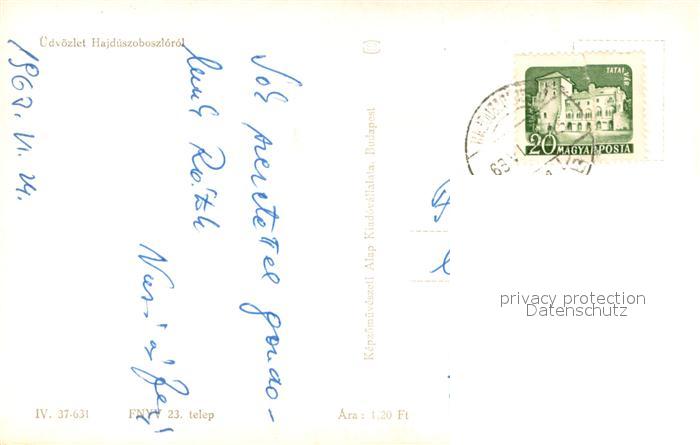 Üdvözlet Hajdúszoboszlóról
1963. VI. 24.
Sok szeretettel gondo-
lunk Rátok
Képzőművészeti Alap Kiadóvállalata, Budapest
TATAI
VÁR
20 MAGYAR POSTA
63 VI
privacy protection
Datenschutz
IV. 37-631
FNYV 23. telep
Ára: 1,20 Ft